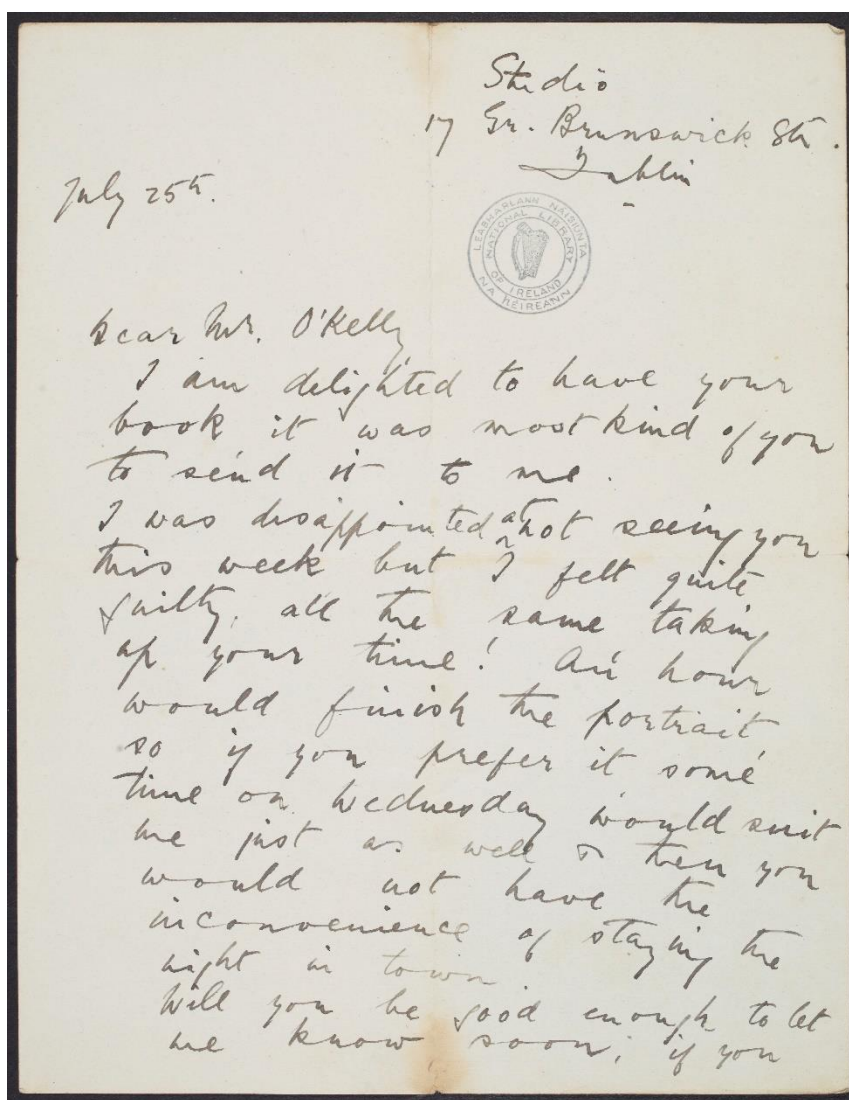 Studio
17 Gr. Brunswick Str.
Dublin
July 25th.
LEABHARLANN NAISIUNTA
NA HEIREANN
NATIONAL LIBRARY
OF IRELAND
Dear Mr. O'Kelly
I am delighted to have your
book it was most kind of you
to send it to me.
I was disappointed at not seeing you
this week but I felt quite
guilty, all the same taking
up your time! An hour
would finish the portrait
so if you prefer it some
time on Wednesday would suit
me just as well & then you
would not have the
inconvenience of staying the
night in town.
Will you be good enough to let
me know soon; if you